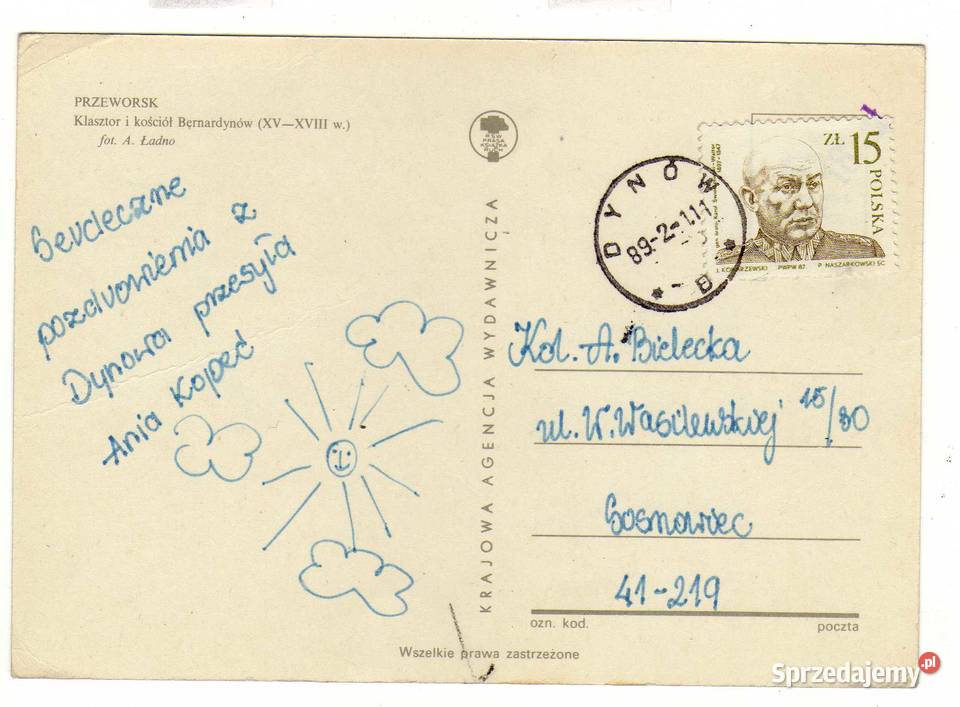 PRZEWORSK
Klasztor i kościół Bernardynów (XV—XVIII w.)
fot. A. Ładno
Serdeczne
pozdrowienia z
Dynowa przesyła
Ania Kopeć
KRAJOWA AGENCJA WYDAWNICZA
RSW
PRASA
KSIĄŻKA
RUCH
DYNÓW
89-2-1.11
B
ZŁ 15
POLSKA
1897-1947
J. KONARZEWSKI PWPW 87 P. NASZARKOWSKI SC.
Kol. A. Bielecka
ul. W. Wasilewskiej 15/30
Sosnowiec
41-219
ozn. kod. poczta
Wszelkie prawa zastrzeżone
Sprzedajemy.pl